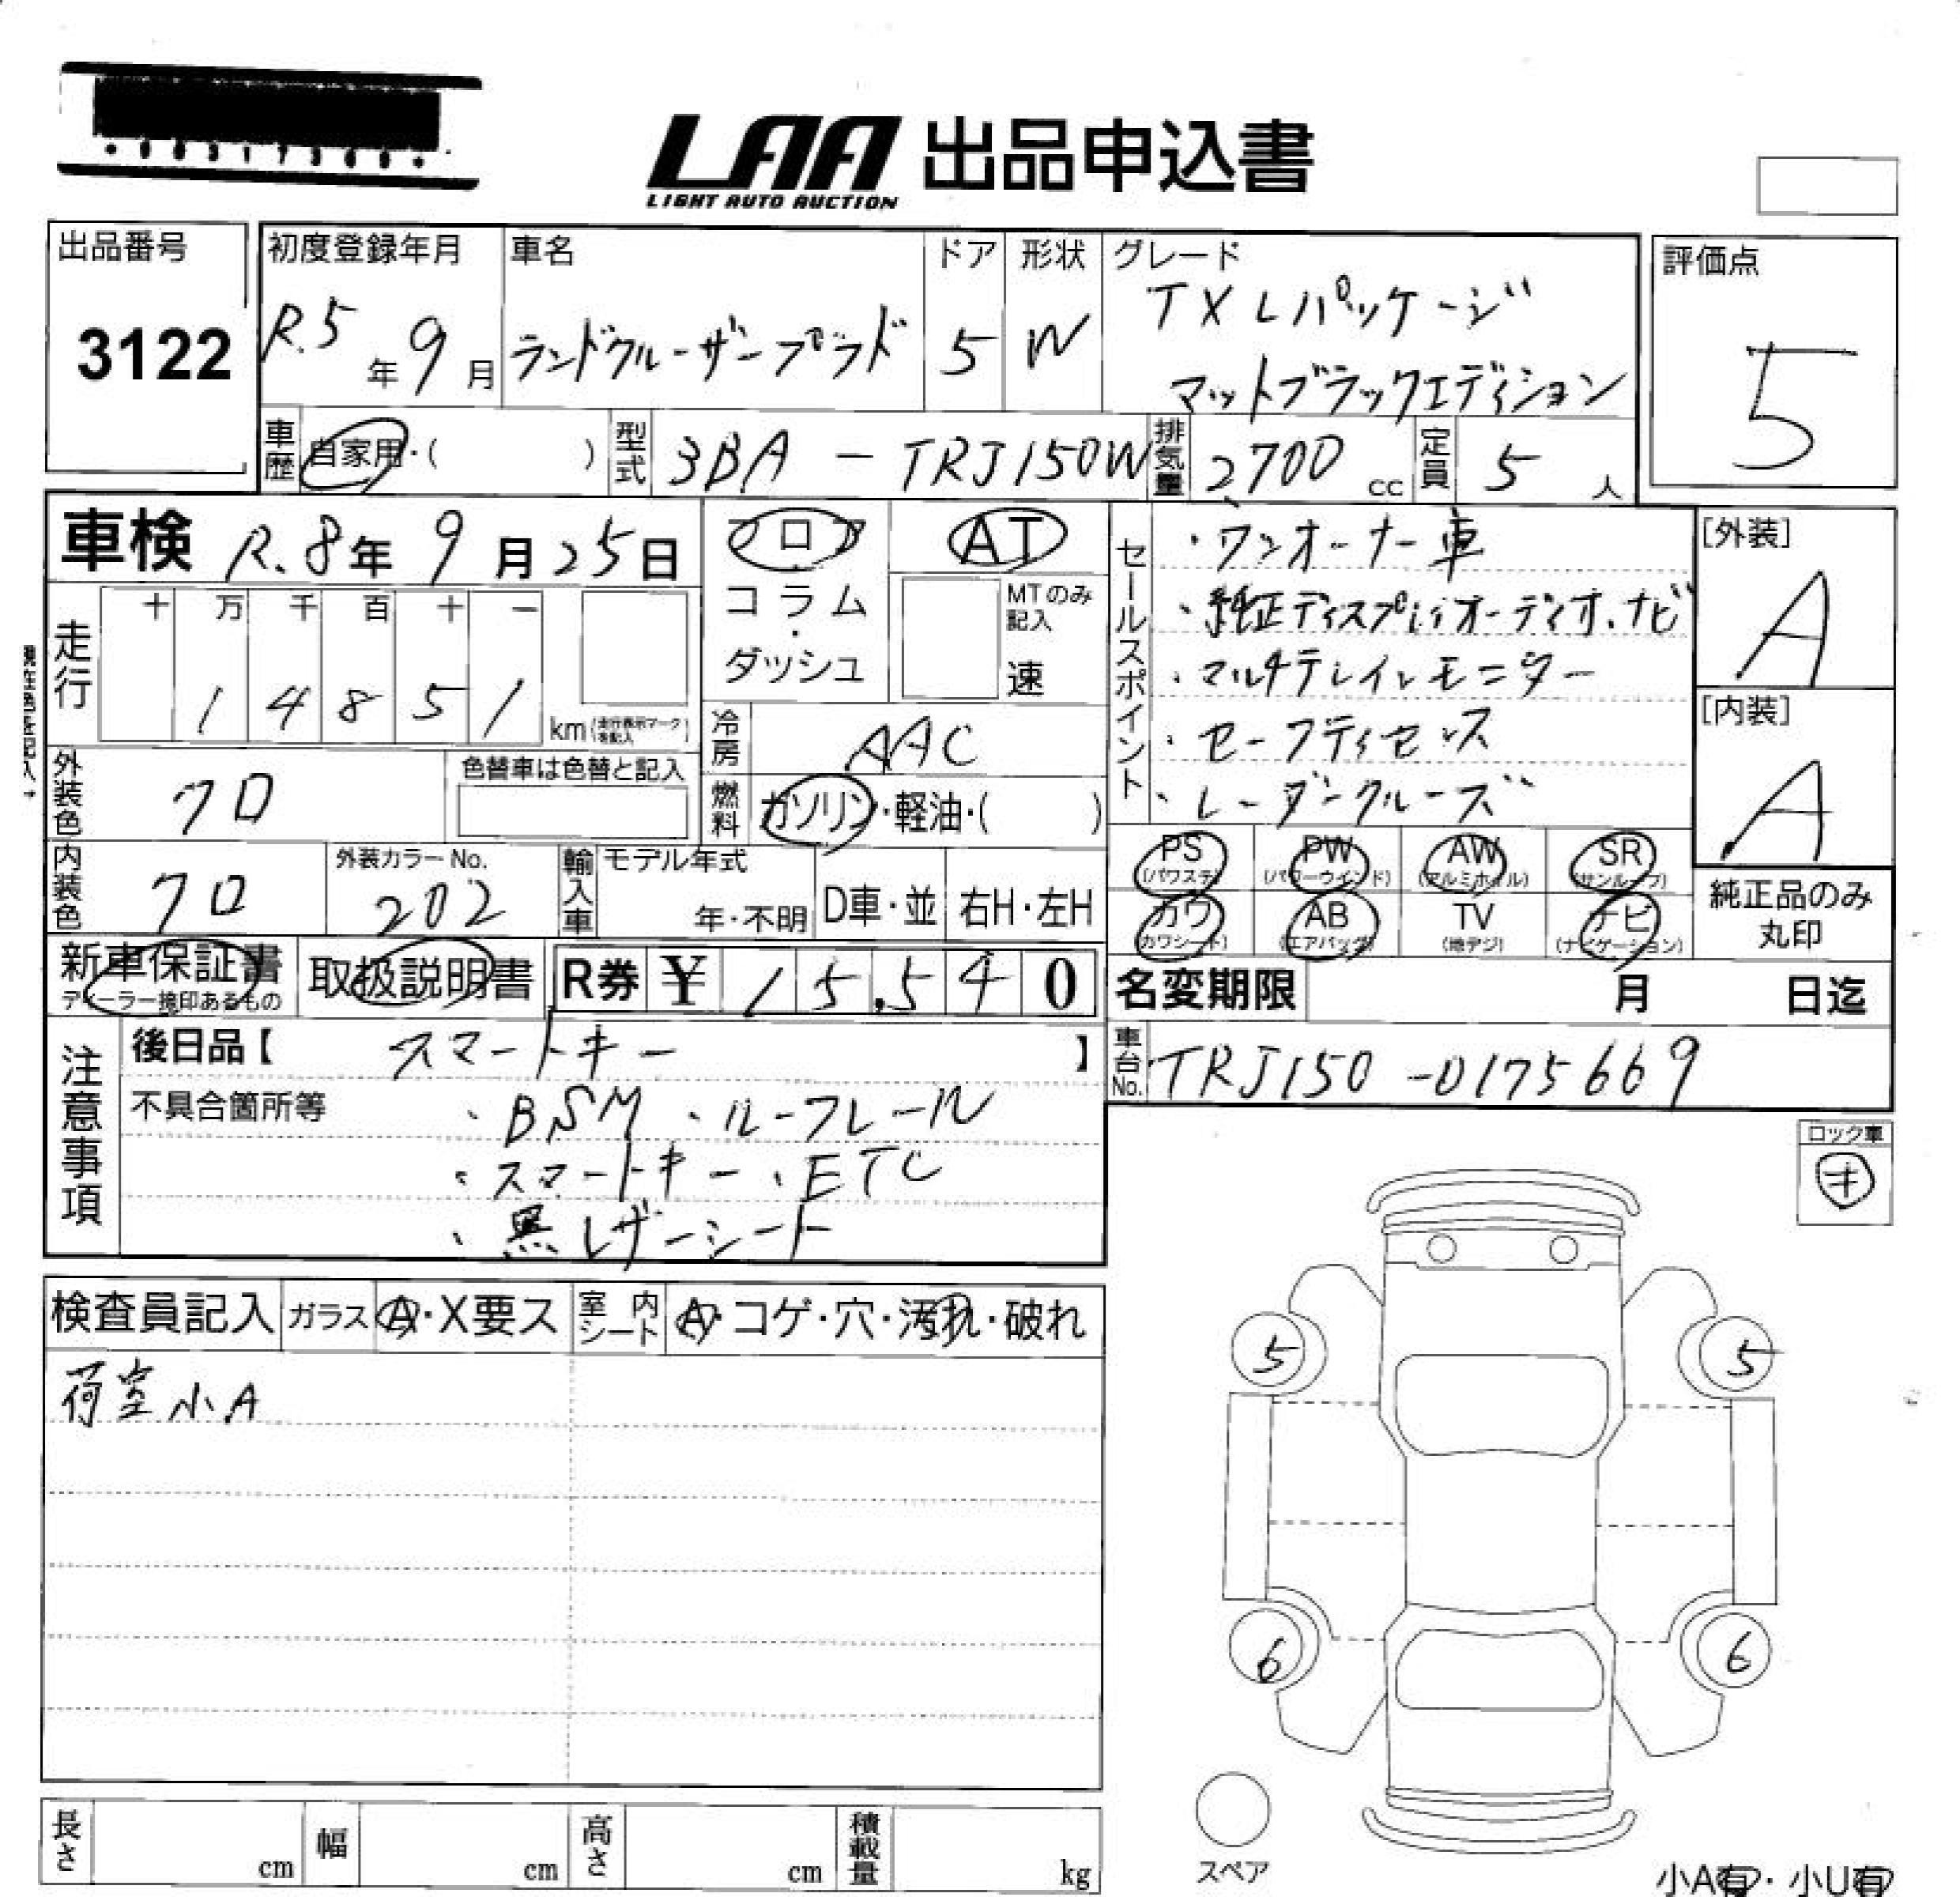 LAA 出品申込書
LIGHT AUTO AUCTION
出品番号
3122
初度登録年月
R.5年9月
車名
ランドクルーザープラド
ドア
5
形状
W
グレード
TX Lパッケージ
マットブラックエディション
評価点
5
車歴
自家用・( )
型式
3BA - TRJ150W
排気量
2700 cc
定員
5人
車検 R.8年9月25日
フロア
コラム
・
ダッシュ
AT
MTのみ記入
速
走行
十 万 千 百 十 一
1 4 8 5 1 km(走行表示マークを記入)
冷房
AAC
外装色
クロ
色替車は色替と記入
燃料
ガソリン・軽油・( )
内装色
クロ
外装カラーNo.
202
輸入車
モデル年式
年・不明
D車・並
右H・左H
セールスポイント
・ワンオーナー車
・純正ディスプレイオーディオ、ナビ
・マルチテレインモニター
・セーフティセンス
・レーダークルーズ
[外装]
A
[内装]
A
PS
(パワステ)
PW
(パワーウインド)
AW
(アルミホイル)
SR
(サンルーフ)
カワ
(カワシート)
AB
(エアバッグ)
TV
(地デジ)
ナビ
(ナビゲーション)
純正品のみ
丸印
新車保証書
ディーラー捺印あるもの
取扱説明書
R券 ¥ 15,540
名変期限 月 日迄
注意事項
後日品【 スマートキー 】
不具合箇所等
・BSM ・ルーフレール
・スマートキー ・ETC
・黒レザーシート
車台No.
TRJ150-0175669
ロック車
キ
検査員記入
ガラス
A・X要ス
室内シート
A・コゲ・穴・汚れ・破れ
荷室小A
5
5
6
6
スペア
長さ cm
幅 cm
高さ cm
積載量 kg
小A有・小U有